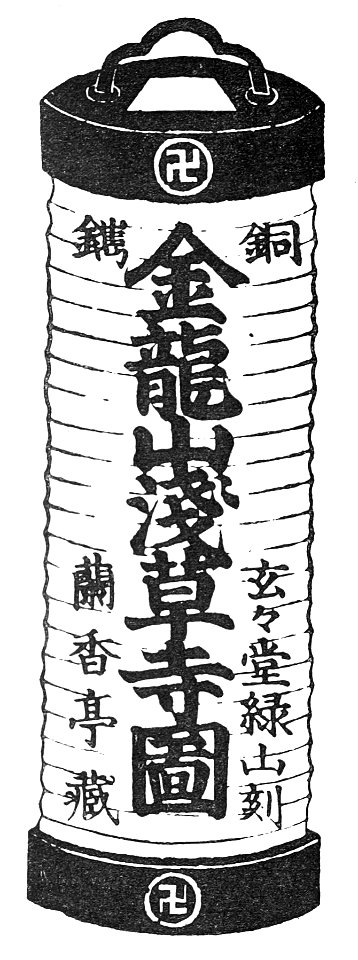 卍
銅鐫
金龍山淺草寺圖
玄々堂緑山刻
蘭香亭藏
卍